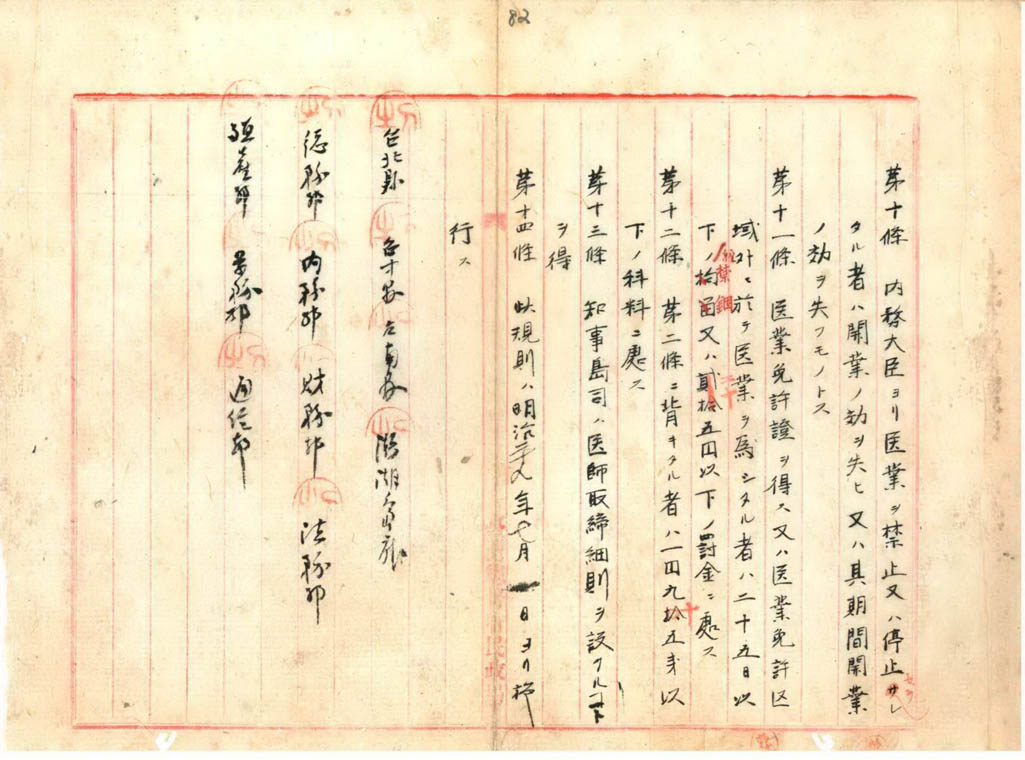 82
第十條 内務大臣ヨリ医業ヲ禁止又ハ停止サレ
タル者ハ開業ノ効ヲ失ヒ又ハ其期間開業
ノ効ヲ失フモノトス
第十一條 医業免許證ヲ得ス又ハ医業免許区
域外ニ於テ医業ヲ為シタル者ハ二十五日以
下ノ拘留又ハ貳拾五円以下ノ罰金ニ處ス
第十二條 第二條ニ背キタル者ハ一円九拾五銭以
下ノ科料ニ處ス
第十三條 知事島司ハ医師取締細則ヲ設クルコト
ヲ得
第十四條 此規則ハ明治二十九年七月一日ヨリ施
行ス
台北縣 台中縣 台南縣 澎湖島廳
総務部 内務部 財務部 法務部
殖産部 軍務部 通信部